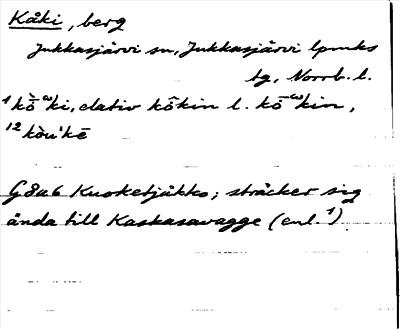 Kåki, berg
Jukkasjärvi sn, Jukkasjärvi lpmks
tg, Norrb. l.
¹ kṑ⁽ᵘ⁾ki, elativ kōkin l. kō⁽ᵘ⁾kin,
¹² kòu'kē
G 8a6 Kuoketjåkko; sträcker sig
ända till Kaskasavagge (enl. ¹).